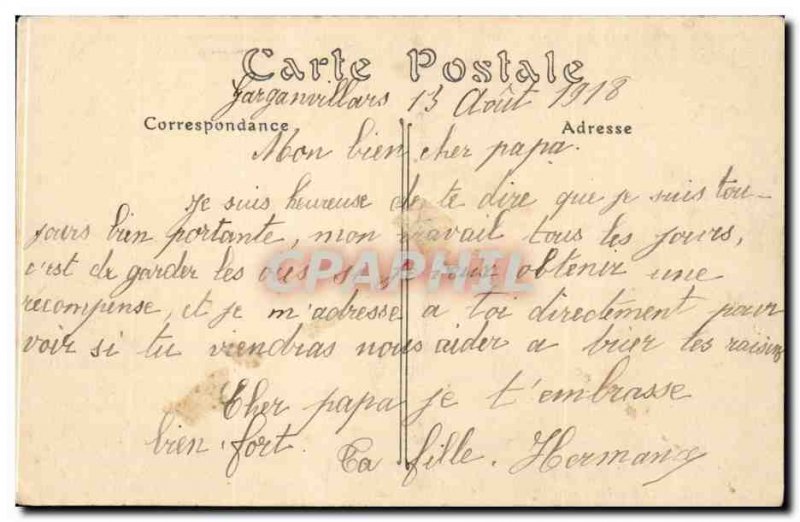 Carte Postale
Garganvillars 13 Août 1918
Correspondance Adresse
Mon bien cher papa.
Je suis heureuse de te dire que je suis tou-
jours bien portante, mon travail tous les jours,
c'est de garder les oies se je veux obtenir une
récompense, et je m'adresse a toi directement pour
voir si tu viendras nous aider a trier les raisins
Cher papa je t'embrasse
bien fort.
Ta fille. Hermance
CPAPHIL